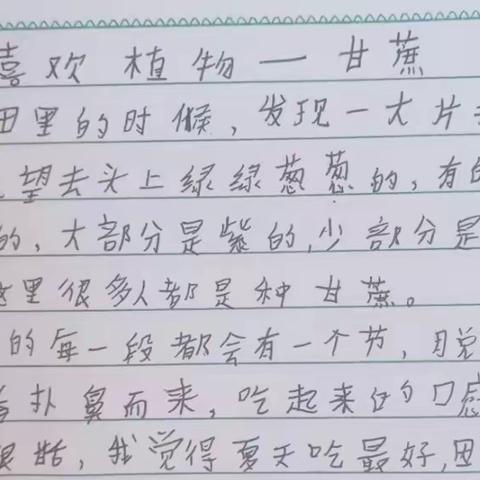 喜欢植物一甘蔗
田里的时候，发现一大片
望去头上绿绿葱葱的，有的
的，大部分是紫的，少部分是
这里很多人都是种甘蔗。
的每一段都会有一个节，脱
扑鼻而来，吃起来的口感
很甜，我觉得夏天吃最好，因